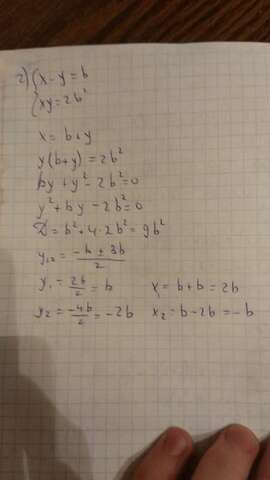 2) { x - y = b
xy = 2b²
x = b + y
y(b+y) = 2b²
by + y² - 2b² = 0
y² + by - 2b² = 0
D = b² + 4·2b² = 9b²
y₁,₂ = (-b ± 3b)/2
y₁ = 2b/2 = b x₁ = b + b = 2b
y₂ = -4b/2 = -2b x₂ = b - 2b = -b